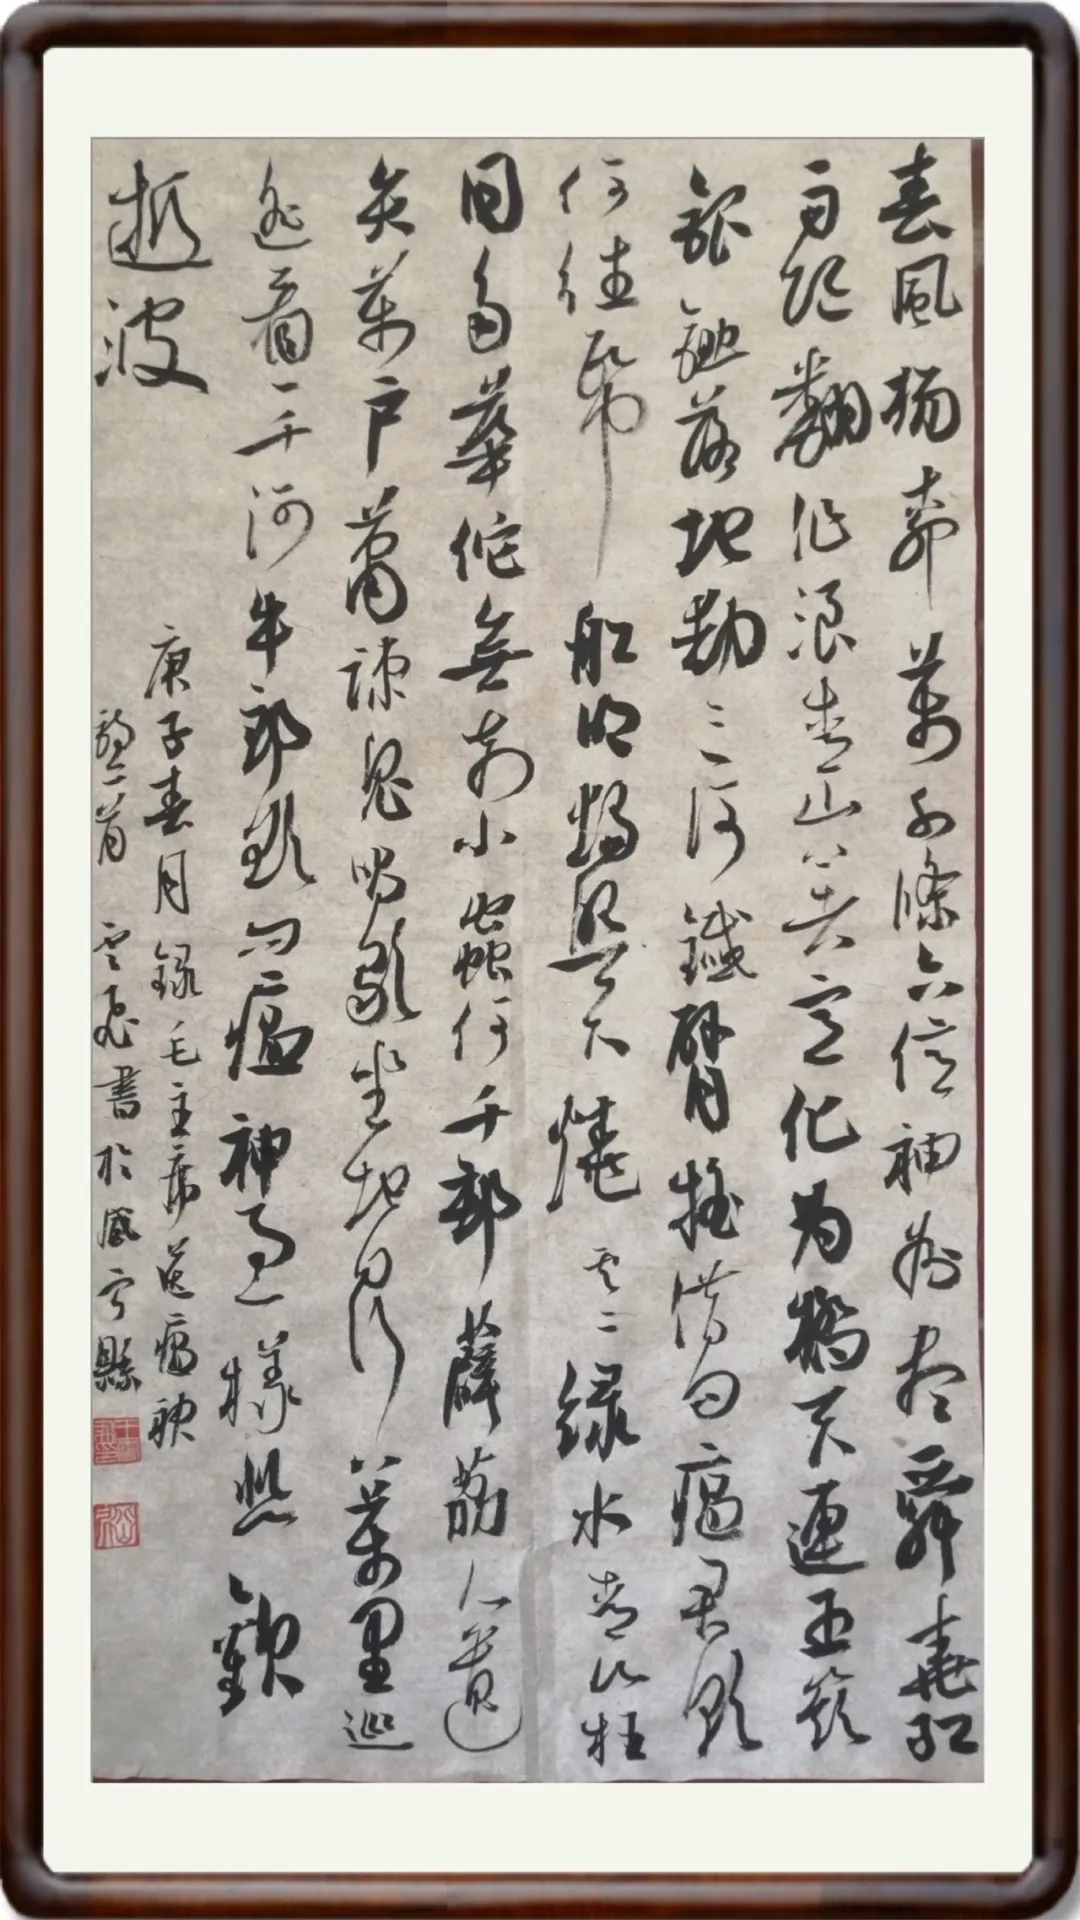 春風楊柳萬千條六億神州盡舜堯紅
雨隨翻作浪青山著意化為橋天連五嶺
銀鋤落地動三河鐵臂搖借問瘟君欲
何往帋船明燭照天燒 其二 綠水青山枉
自多華佗無奈小蟲何千邨薜荔人遺
矢萬戶蕭疎鬼唱歌坐地日行八萬里巡
遙看一千河牛郎欲問瘟神事一樣悲歡
逝波
庚子春月錄毛主席送瘟神
詩二首 雲飛書於威寧縣